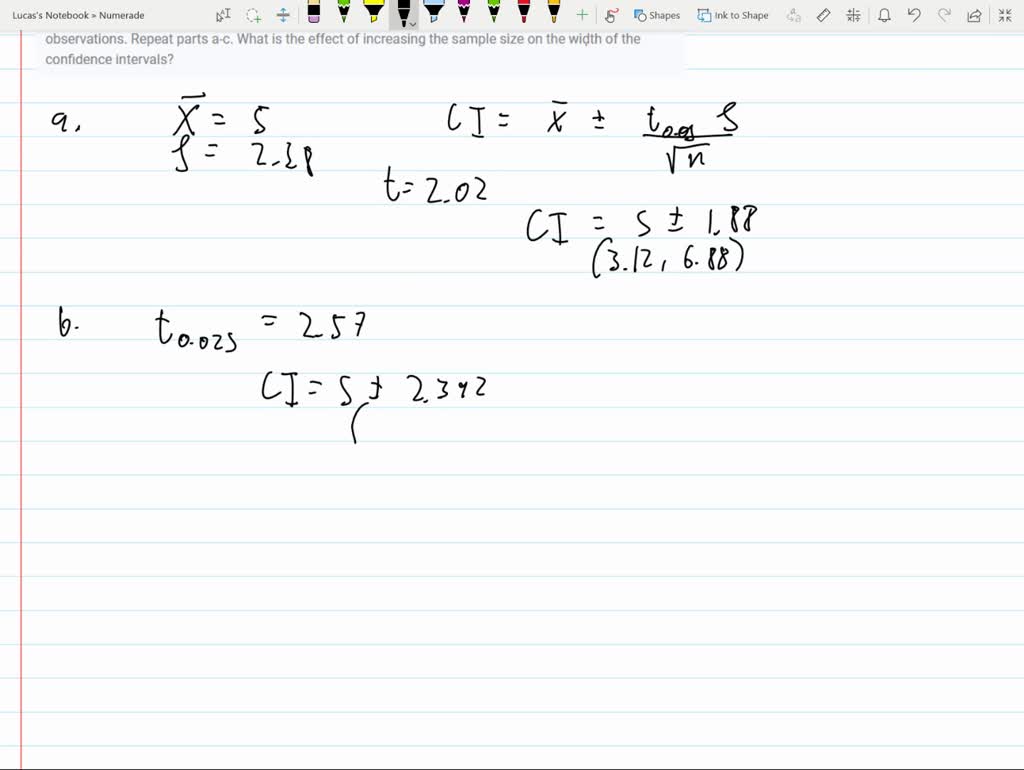 Lucas's Notebook » Numerade
Shapes
Ink to Shape
observations. Repeat parts a-c. What is the effect of increasing the sample size on the width of the
confidence intervals?
a. X̄ = 5 CI = x̄ ± t0.05 S / √n
S = 2.28
t = 2.02
CI = 5 ± 1.88
(3.12, 6.88)
b. t0.025 = 2.57
CI = 5 ± 2.392
(